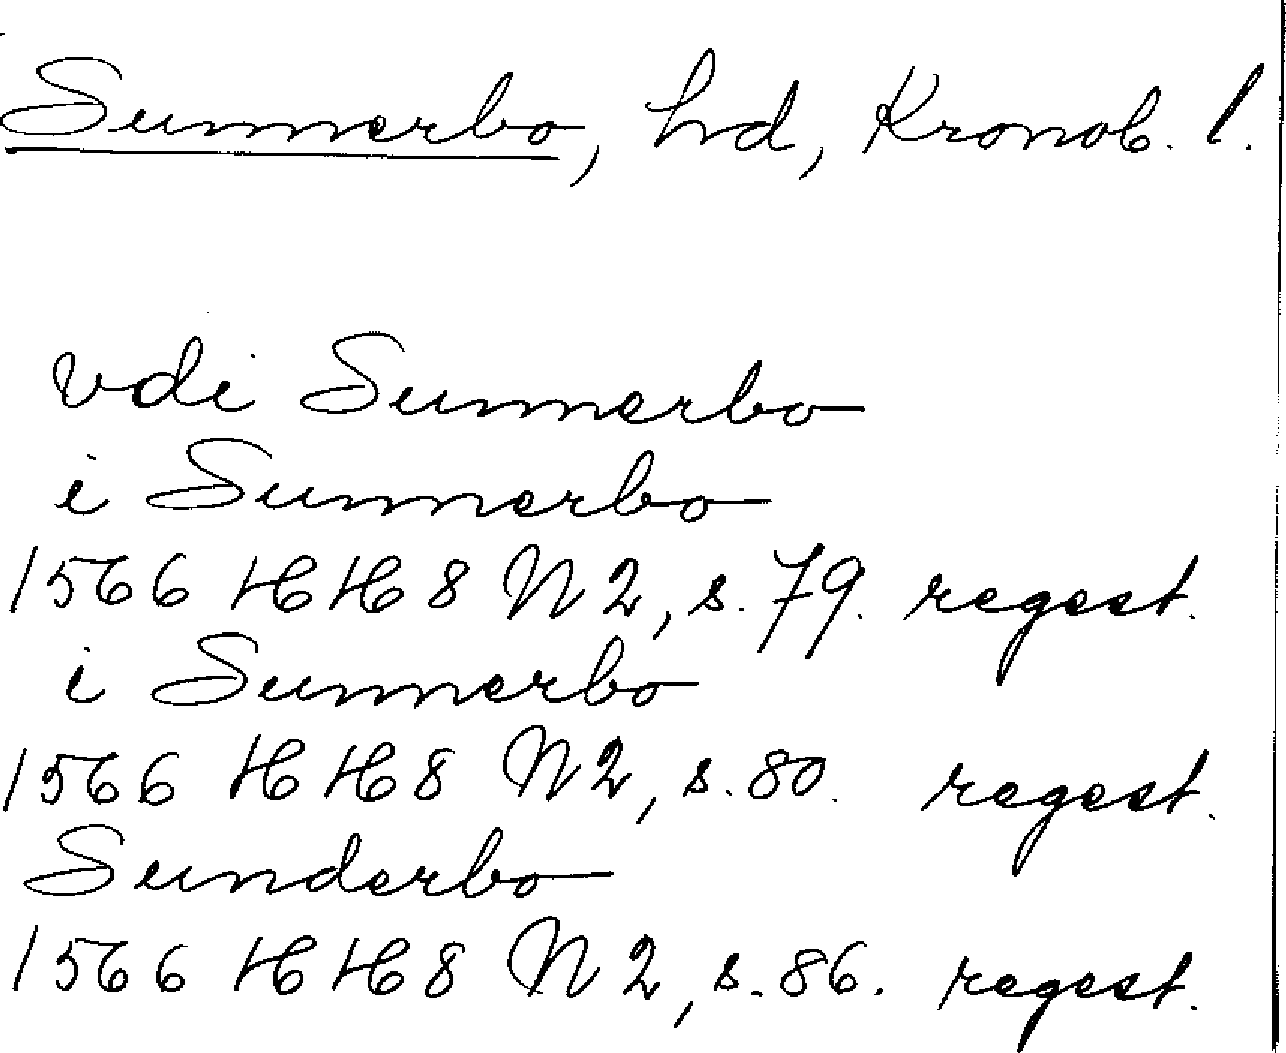 Sunnerbo, hd, Kronob. l.
vdi Sunnerbo
i Sunnerbo
1566 HH8 N2, s. 79. regest.
i Sunnerbo
1566 HH8 N2, s. 80. regest.
Sunderbo
1566 HH8 N2, s. 86. regest.